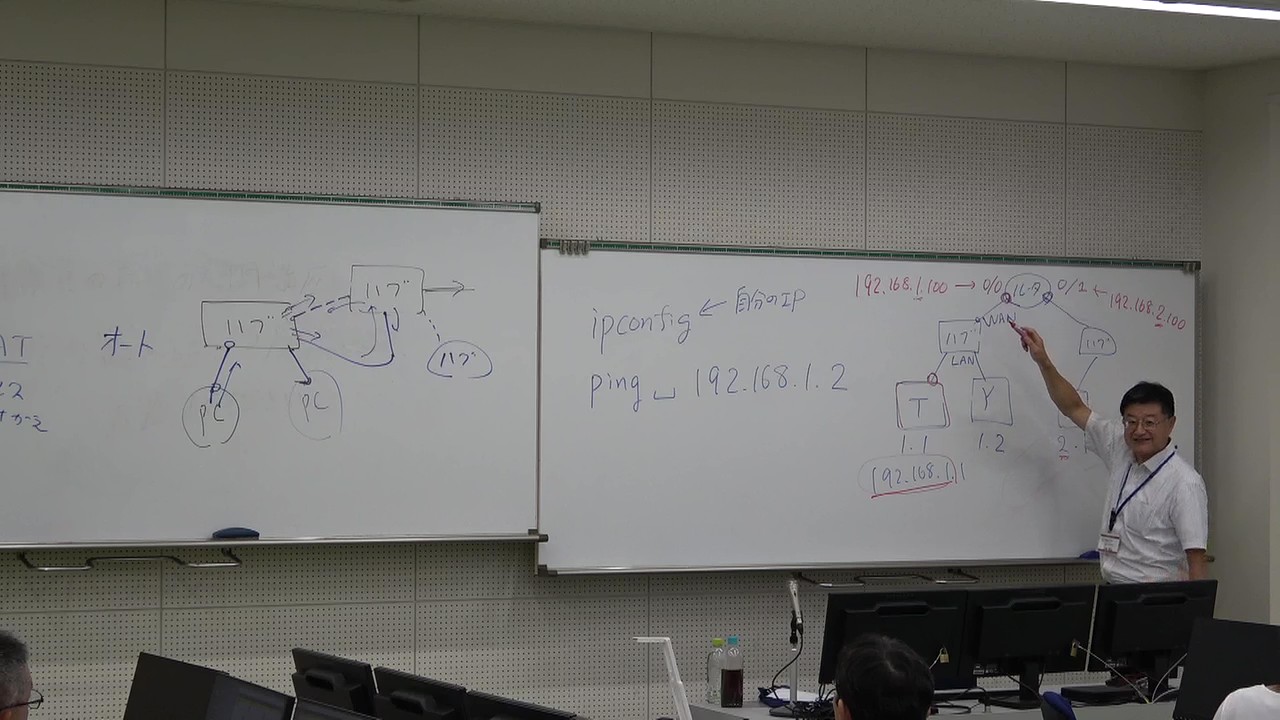 AT
オート
ハブ
ハブ
ハブ
PC
PC
ipconfig ← 自分のIP
ping ␣ 192.168.1.2
192.168.1.100 → 0/0
ルータ
0/1 ← 192.168.2.100
WAN
ハブ
ハブ
LAN
T
Y
1.1
1.2
2.
192.168.1.1